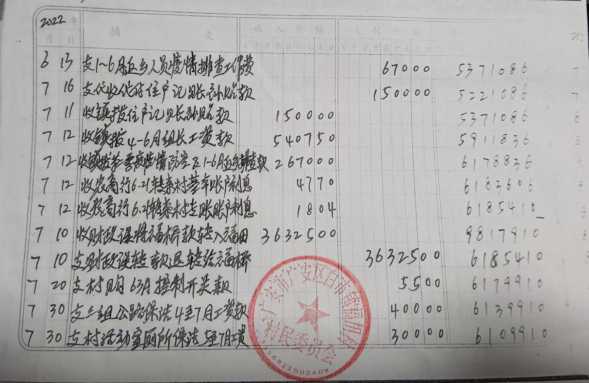 2022年 摘 要 收入金额 支付金额
月 日
6 13 支1-6月返乡人员疫情排查工作费 67000 5371086
7 16 支代收代付住户记账补贴款 150000 5221086
7 11 收镇拨住户记账补贴款 150000 5371086
7 12 收镇拨4-6月组长工资款 540750 5911836
7 12 收镇拨 疫情防控及1-6月 款 267000 6178836
7 12 收农商行6.21转来村 账户利息 4770 6183606
7 12 收农商行6.21转来村 账户利息 1804 6185410
7 10 收财政误将 桥款转入福田 3632500 9817910
7 10 支财政误转款退转给 桥 3632500 6185410
7 20 支村 开关款 5500 6179910
7 30 支三组公路保洁4至7月工资款 40000 6139910
7 30 支村活动室厕所保洁 至7月工资 30000 6109910
广安市广安区 村民委员会